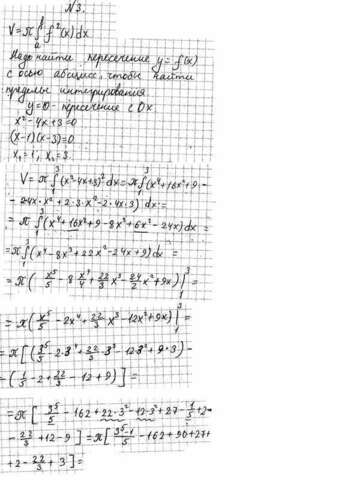 №3.
V = π ∫ₐᵇ f²(x) dx
Надо найти пересечение y = f(x)
с осью абсцисс, чтобы найти
пределы интегрирования
y=0 - пересечение с Ox
x² - 4x + 3 = 0
(x-1)(x-3) = 0
x₁ = 1, x₂ = 3.
V = π ∫₁³ (x² - 4x + 3)² dx = π ∫₁³ (x⁴ + 16x² + 9 -
- 24x · x² + 2·3·x² - 2·4x·3) dx =
= π ∫₁³ (x⁴ + 16x² + 9 - 8x³ + 6x² - 24x) dx =
= π ∫₁³ (x⁴ - 8x³ + 22x² - 24x + 9) dx =
= π (x⁵/5 - 8 x⁴/4 + 22/3 x³ - 24/2 x² + 9x) |₁³ =
= π (x⁵/5 - 2x⁴ + 22/3 x³ - 12x² + 9x) |₁³ =
= π [(3⁵/5 - 2·3⁴ + 22/3 · 3³ - 12·3² + 9·3) -
- (1/5 - 2 + 22/3 - 12 + 9)] =
= π [3⁵/5 - 162 + 22·3² - 12·3² + 27 - 1/5 + 2 -
- 22/3 + 12 - 9] = π [(3⁵-1)/5 - 162 + 90 + 27 +
+ 2 - 22/3 + 3] =